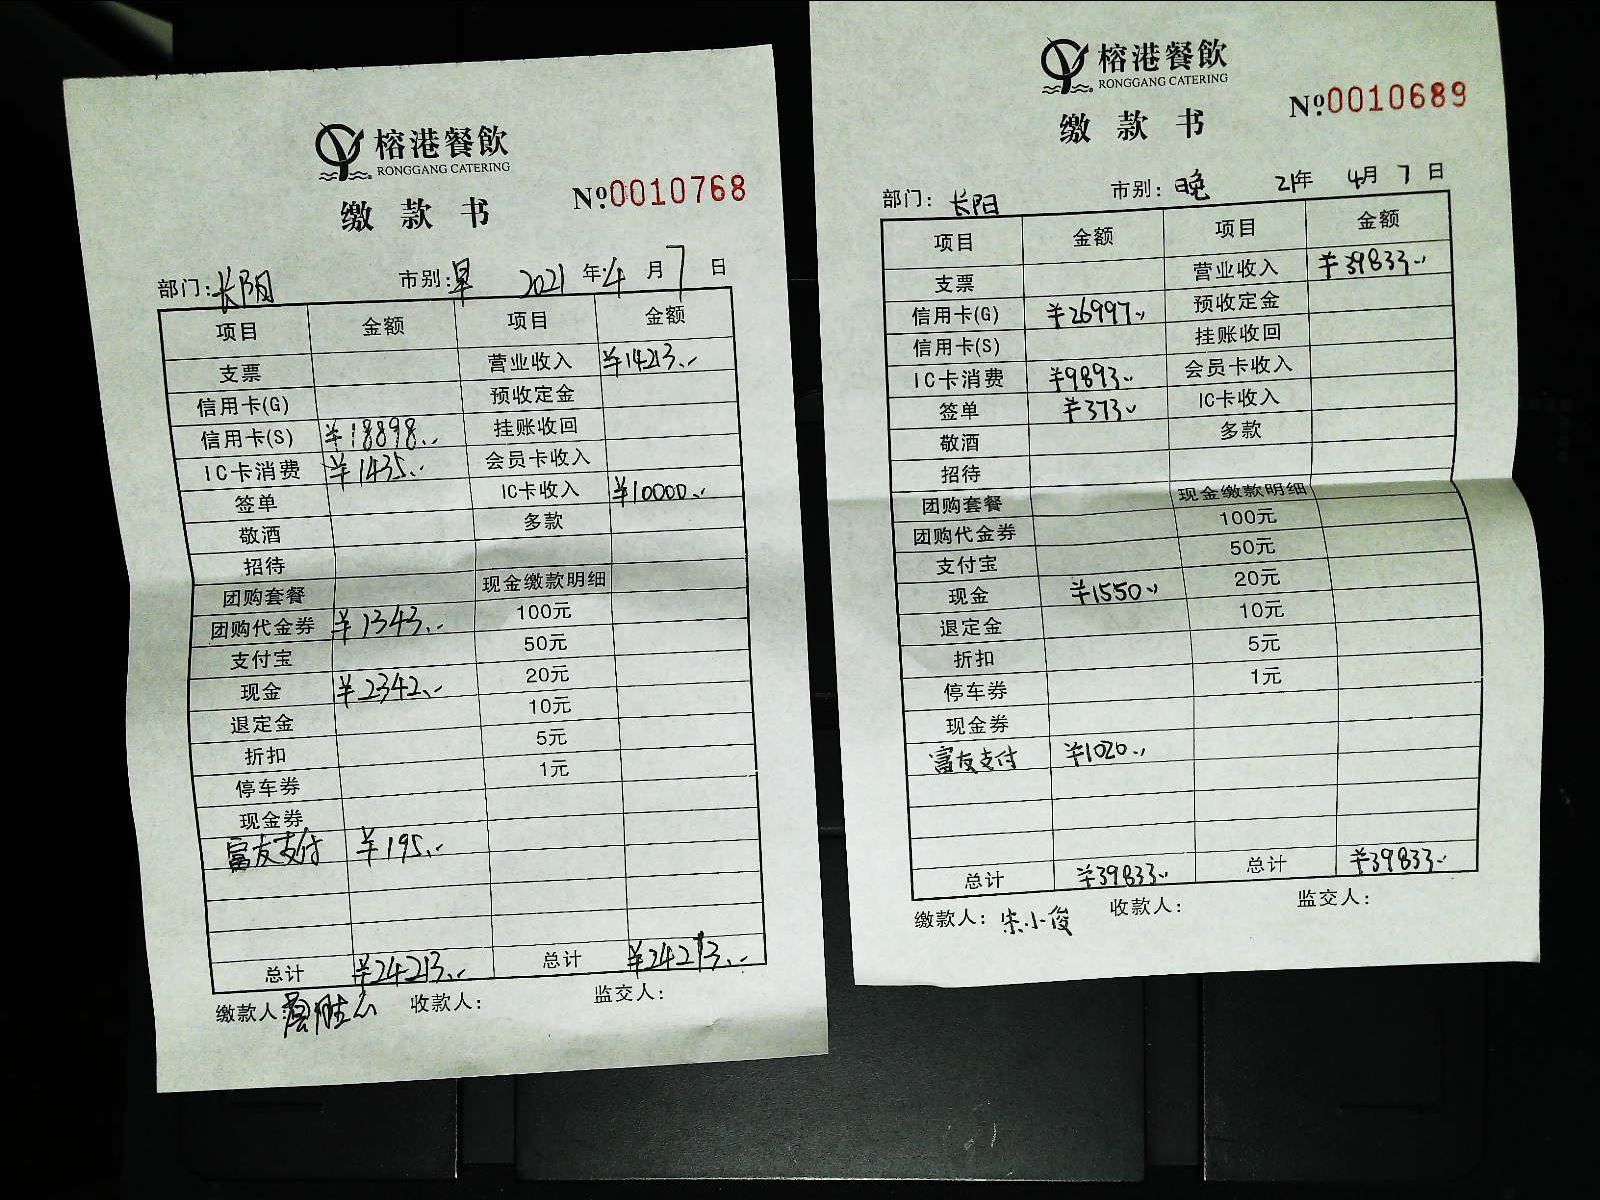 榕港餐飲
RONGGANG CATERING
缴款书
№0010768
部门：长阳 市别：早 2021年4月7日
项目 金额 项目 金额
支票 营业收入 ¥14213.-
信用卡(G) 预收定金
信用卡(S) ¥18898.- 挂账收回
IC卡消费 ¥1435.- 会员卡收入
签单 IC卡收入 ¥10000.-
敬酒 多款
招待
团购套餐 现金缴款明细
团购代金券 ¥1343.- 100元
支付宝 50元
现金 ¥2342.- 20元
退定金 10元
折扣 5元
停车券 1元
现金券
富友支付 ¥195.-
总计 ¥24213.- 总计 ¥24213.-
缴款人 收款人： 监交人：
榕港餐飲
RONGGANG CATERING
缴款书
№0010689
部门：长阳 市别：晚 21年4月7日
项目 金额 项目 金额
支票 营业收入 ¥39833.-
信用卡(G) ¥26997.- 预收定金
信用卡(S) 挂账收回
IC卡消费 ¥9893.- 会员卡收入
签单 ¥373.- IC卡收入
敬酒 多款
招待
团购套餐 现金缴款明细
团购代金券 100元
支付宝 50元
现金 ¥1550.- 20元
退定金 10元
折扣 5元
停车券 1元
现金券
富友支付 ¥1020.-
总计 ¥39833.- 总计 ¥39833.-
缴款人：宋小俊 收款人： 监交人：